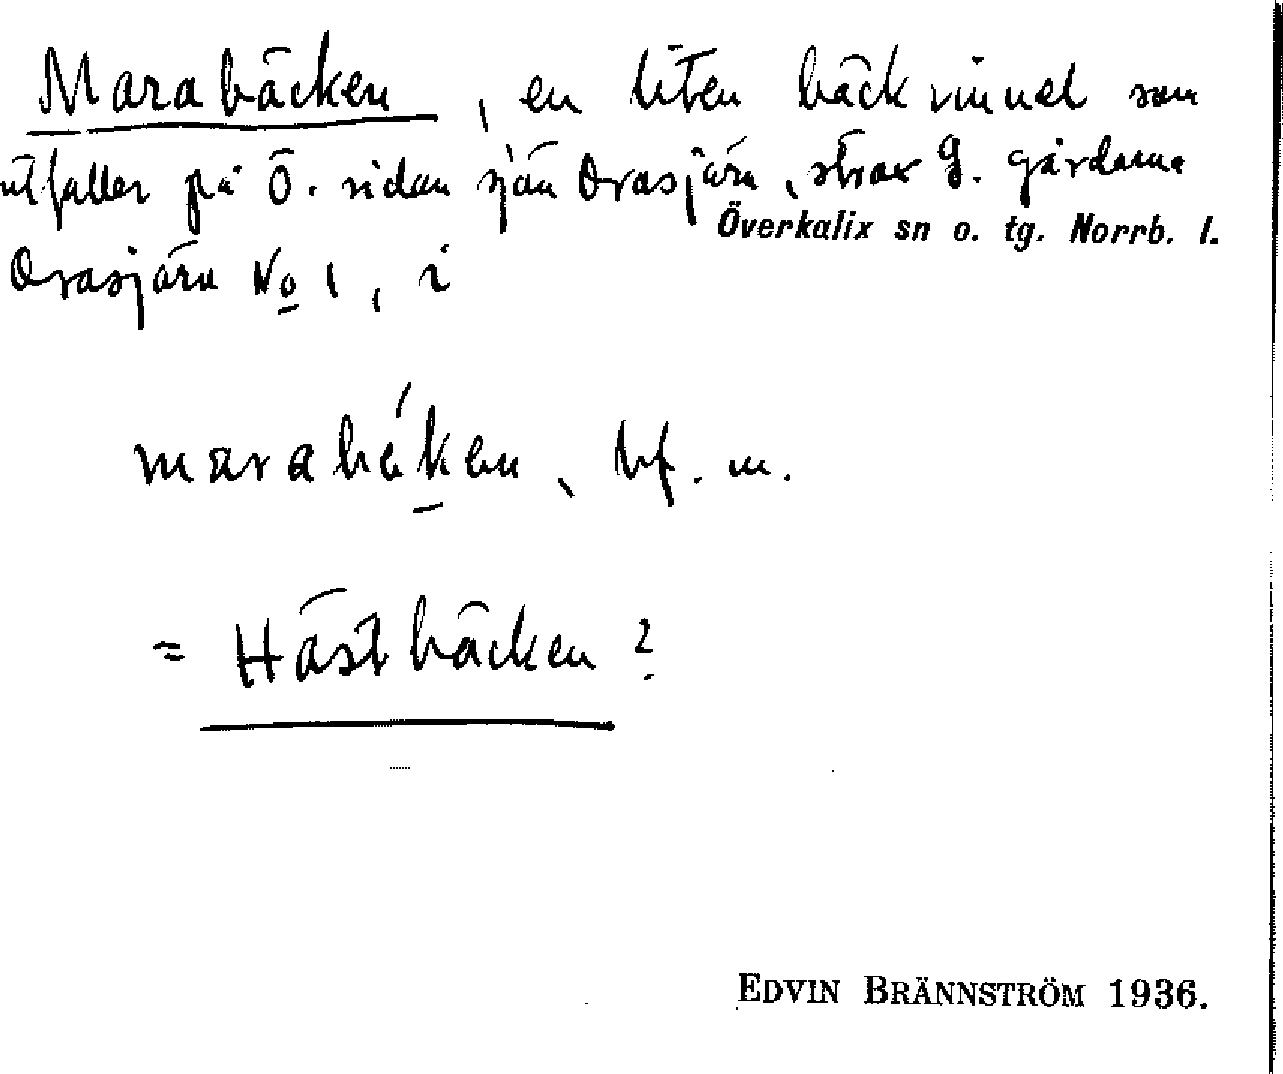 Marabäcken, en liten bäckrinnel som
utfaller på Ö. sidan sjön Orasjärv, strax g. gårdarna
Överkalix sn o. tg. Norrb. l.
Orasjärv No 1, i
bf. m.
= Hästbäcken?
EDVIN BRÄNNSTRÖM 1936.